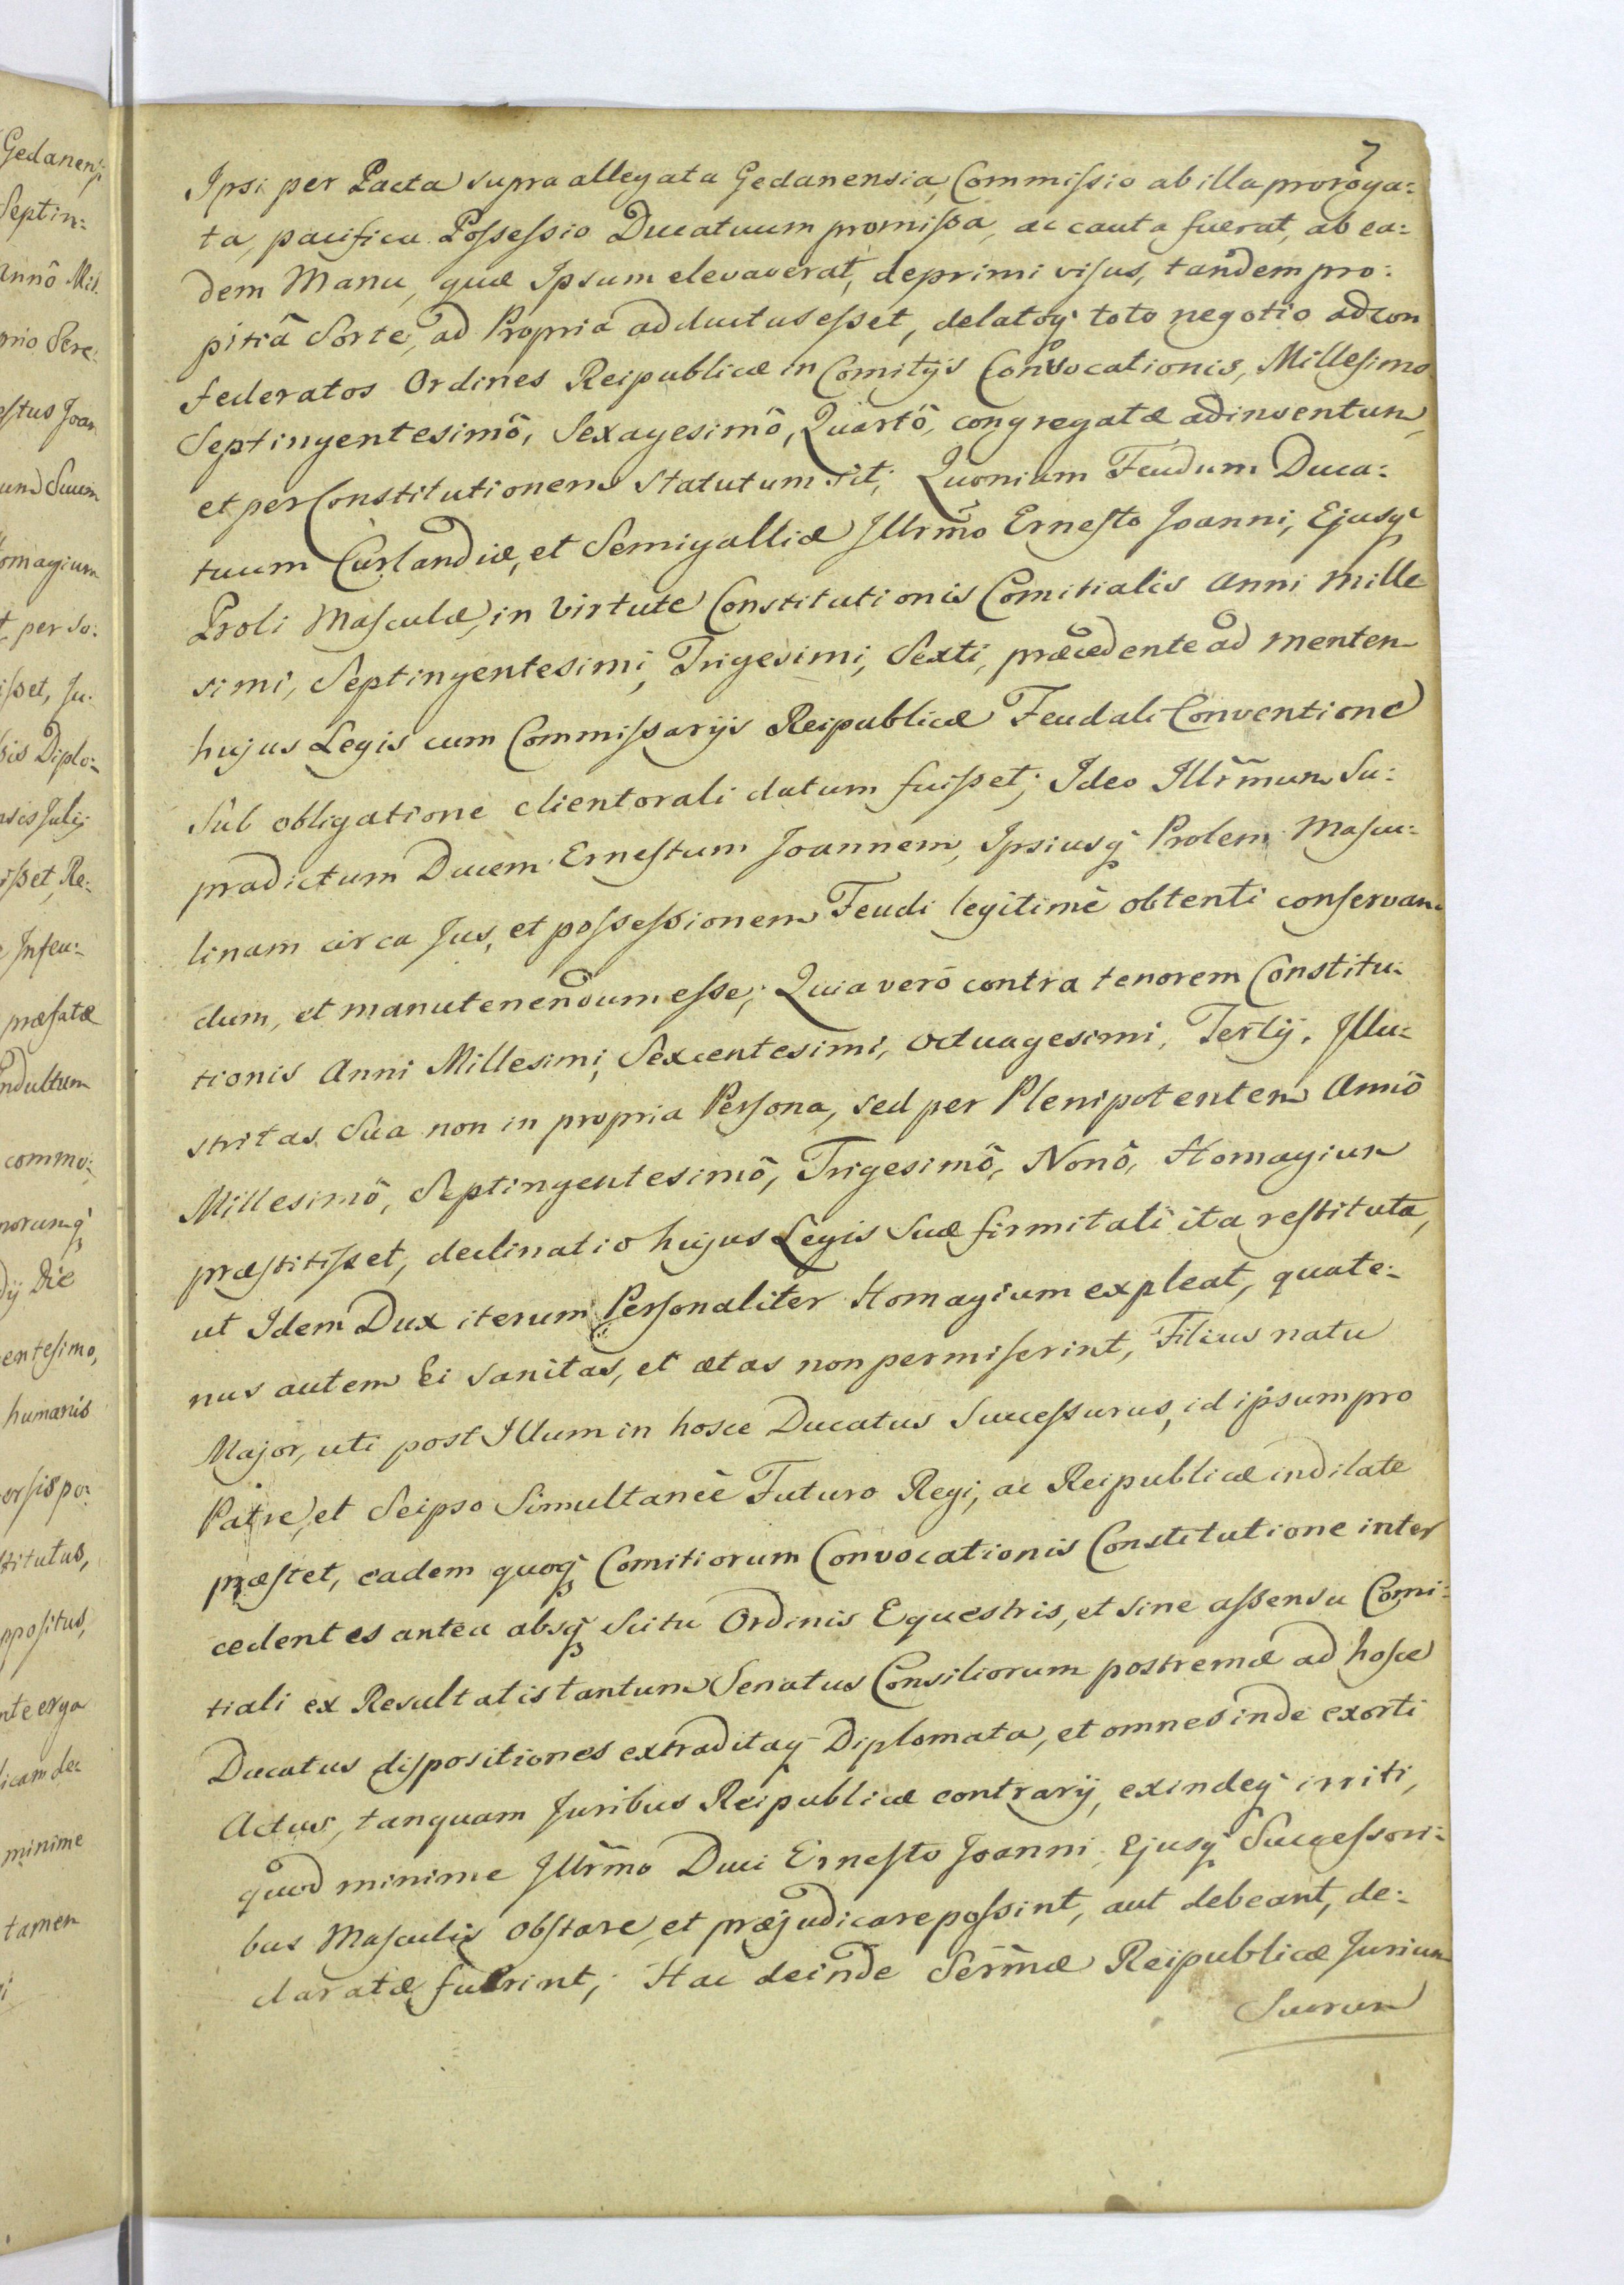 7
Ipsi per Pacta supra allegata Gedanensia, Commissio ab illa proroga:
ta, pacifica Possessio Ducatuum promissa, ac cauta fuerat, ab ea:
dem Manu, quæ Ipsum elevaverat, deprimi visus, tandem pro:
pitiâ Sorte, ad Propria adductus esset, delatoq́ toto negotio ad con
federatos Ordines Reipublicæ in Comitijs Convocationis, Millesimo
Septingentesimô, Sexagesimô, Quartô, congregatæ adinventum,
et per Constitutionem statutum sit; Quoniam Feudum Duca:
tuum Curlandiæ, et Semigalliæ Illrm̃o Ernesto Joanni, Ejusq́
Proli Masculæ, in virtute Constitutionis Comitialis Anni Mille
simi, Septingentesimi, Trigesimi, Sexti, præcedente ad mentem
hujus Legis cum Commissarijs Reipublicæ Feudali Conventione
Sub obligatione clientorali datum fuisset; Ideo Illrm̃um Su:
pradictum Ducem Ernestum Joannem, Ipsiusq́ Prolem Mascu:
linam circa Jus, et possessionem Feudi legitimè obtenti conservan
dum, et manutenendum esse; Quia verò contra tenorem Constitu:
tionis Anni Millesimi, Sexcentesimi, octuagesimi, Tertij, Illu:
stritas Sua non in propria Persona, sed per Plenipotentem Annô
Millesimô, Septingentesimô, Trigesimô, Nonô, Homagium
præstitisset, declinatio hujus Legis Suæ firmitati ita restituta,
ut Idem Dux iterum Personaliter Homagium expleat, quate:
nus autem Ei sanitas, et ætas non permiserint, Filius natu
Major, uti post Illum in hosce Ducatus Successurus, id ipsum pro
Patre, et Seipso Simultaneè Futuro Regi, ac Reipublicæ indilate
præstet, eadem quoq́ Comitiorum Convocationis Constitutione inter
cedentes antea absq́ Scitu Ordinis Equestris, et sine assensu Comi:
tiali ex Resultatis tantum Senatus Consiliorum postremæ ad hosce
Ducatus dispositiones extraditaq́ Diplomata, et omnes inde exorti
Actus, tanquam Juribus Reipublicæ contrarij, exindeq́ irriti,
quod minime Illrm̃o Duci Ernesto Joanni, Ejusq́ Successori:
bus Masculis obstare, et præjudicare possint, aut debeant, de:
claratæ fuerint; Hac deinde Serm̃æ Reipublicæ Jurium
Suorum
Gedanensi
Septin:
Annô Mil:
prio Sere:
estus Joan
um Suum
Homagium
t per So:
isset, Ju:
bis Diplo:
nsis Julij
isset, Re:
e Infeu:
præfatæ
Indultum
commo:
norumq́
dij Die
entesimo,
humanis
ersis po:
stitutus,
ppositus,
nte erga
licam de:
minime
tamen